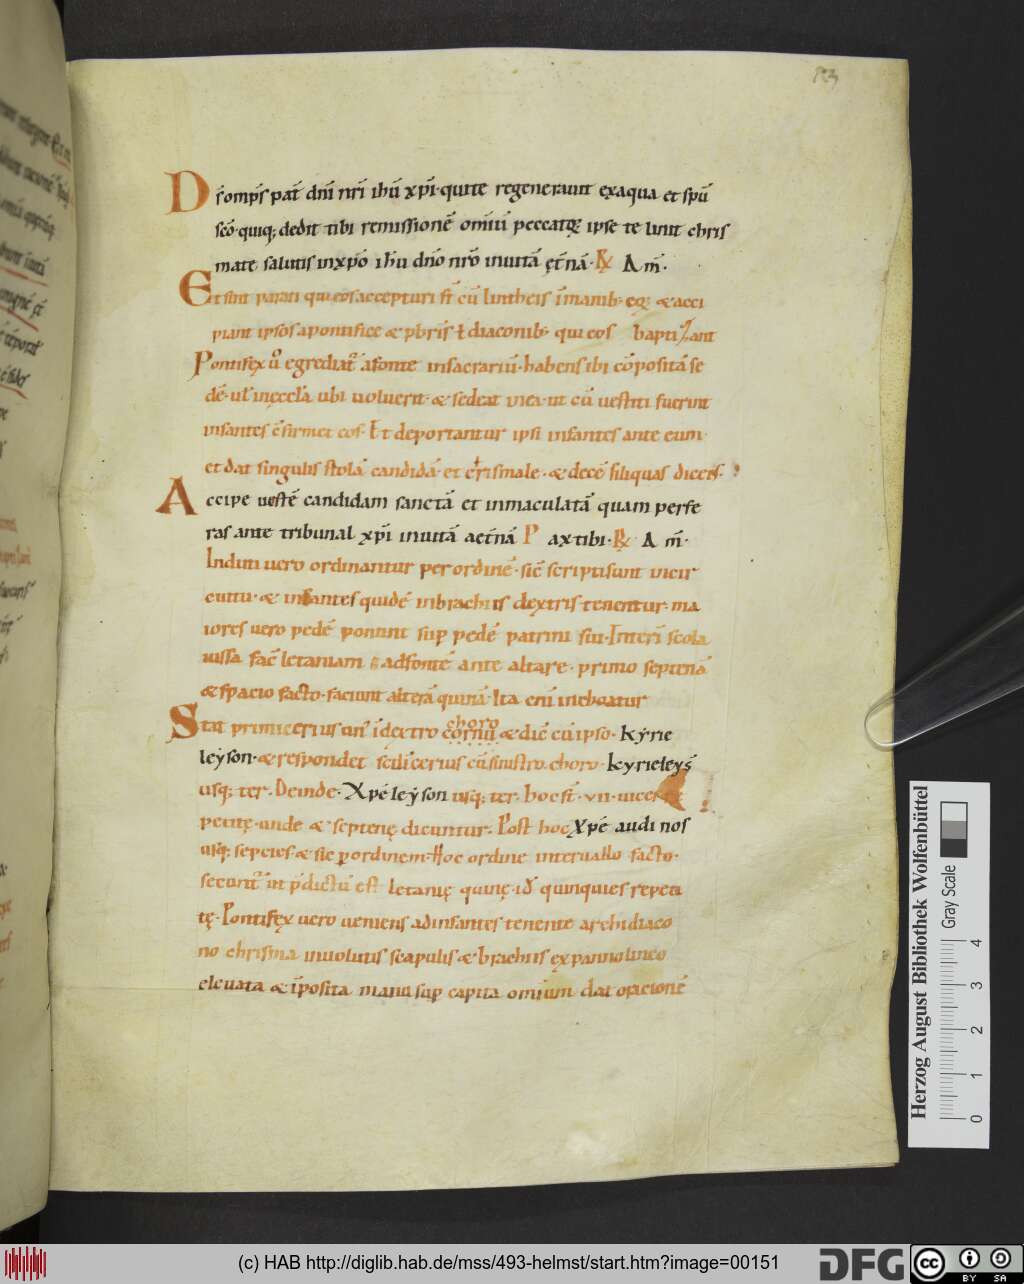 Ds̄ omps̄ pat̄ dn̄i nr̄i ih̄u xp̄i · qui te regeneravit ex aqua et spū
scō · quiq; dedit tibi remissionē omiū peccatoꝝ ipse te linit chris
mate salutis in xp̄o ih̄u dn̄o nr̄o in vitā et̄nā · ℞ Am̄ ·
Et sint parati qui eos accepturi st̄ cū lintheis ī manib; eoꝝ · & acci
piant ipsos a pontifice & pbr̄is ł diaconib; qui eos baptizant
Pontifex ū egrediat̄ a fonte in sacrariū · habens ibi cōpositā se
dē · ul̓ in eccl̄a ubi voluerit · & sedeat in ea · ut cū vestiti fuerint
infantes cf̄irmet eos · Et deportantur ipsi infantes ante eum
et dat singulis stolā candidā · et crismale · & decē siliquas dicens ·
Accipe vestē candidam sanctā et inmaculatā quam perfe
ras ante tribunal xp̄i in vitā aet̄nā P ax tibi · ℞ Am̄ ·
Induti vero ordinantur per ordinē · sic̄ scripti sunt in cir
cuitu · & infantes quidē in brachiis dextris tenentur · ma
iores vero pedē ponunt sup̄ pedē patrini sui · Interī scola
iussa fac̄ letaniam · ad fontē ante altare · primo septenā
& spacio facto · faciunt alterā quinā · Ita enī inchoatur
Stat primicerius cū īdextro cornu & dic̄ cū ipso · Kyrie
choro
leyson · & respondet secūcerius cū sinistro choro · kyrieleys̄
usq; ter · Deinde · Xpē leyson usq; ter · hoc st̄ · vii · vice
petitę · unde & septenę dicuntur · Post hoc Xpē audi nos
usq; sepcies · & sic ꝑ ordinem · Hoc ordine intervallo facto ·
secunt̄ ut p̄dictū est letanię quinę · id̄ quinquies repeti
tę · Pontifex vero veniens ad infantes tenente archidiaco
no chrisma involutis scapulis & brachiis ex panno lineo
elevata & īposita manu sup̄ capita omium dat orationē
Herzog August Bibliothek Wolfenbüttel
Gray Scale
0 1 2 3 4
(c) HAB http://diglib.hab.de/mss/493-helmst/start.htm?image=00151
DFG
cc BY SA